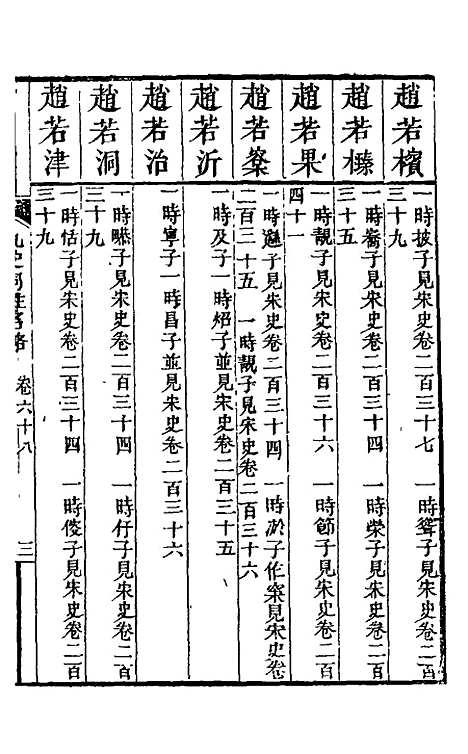 趙若檳
一時披子見宋史卷二百三十七　一時聳子見宋史卷二百
三十九
趙若榛
一時裔子見宋史卷二百三十四　一時榮子見宋史卷二百
三十五
趙若果
一時靚子見宋史卷二百三十六　一時節子見宋史卷二百
四十一
趙若
一時子見宋史卷二百三十四　一時淤子作窠見宋史卷
二百三十五　一時靚子見宋史卷二百三十六
趙若沂
一時及子一時炤子並見宋史卷二百三十五
趙若治
一時寧子一時昌子並見宋史卷二百三十六
趙若洞
一時子見宋史卷二百三十四　一時仔子見宋史卷二百
三十九
趙若津
一時恬子見宋史卷二百三十四　一時傻子見宋史卷二百
三十九
九史同姓名略　卷六十八　三